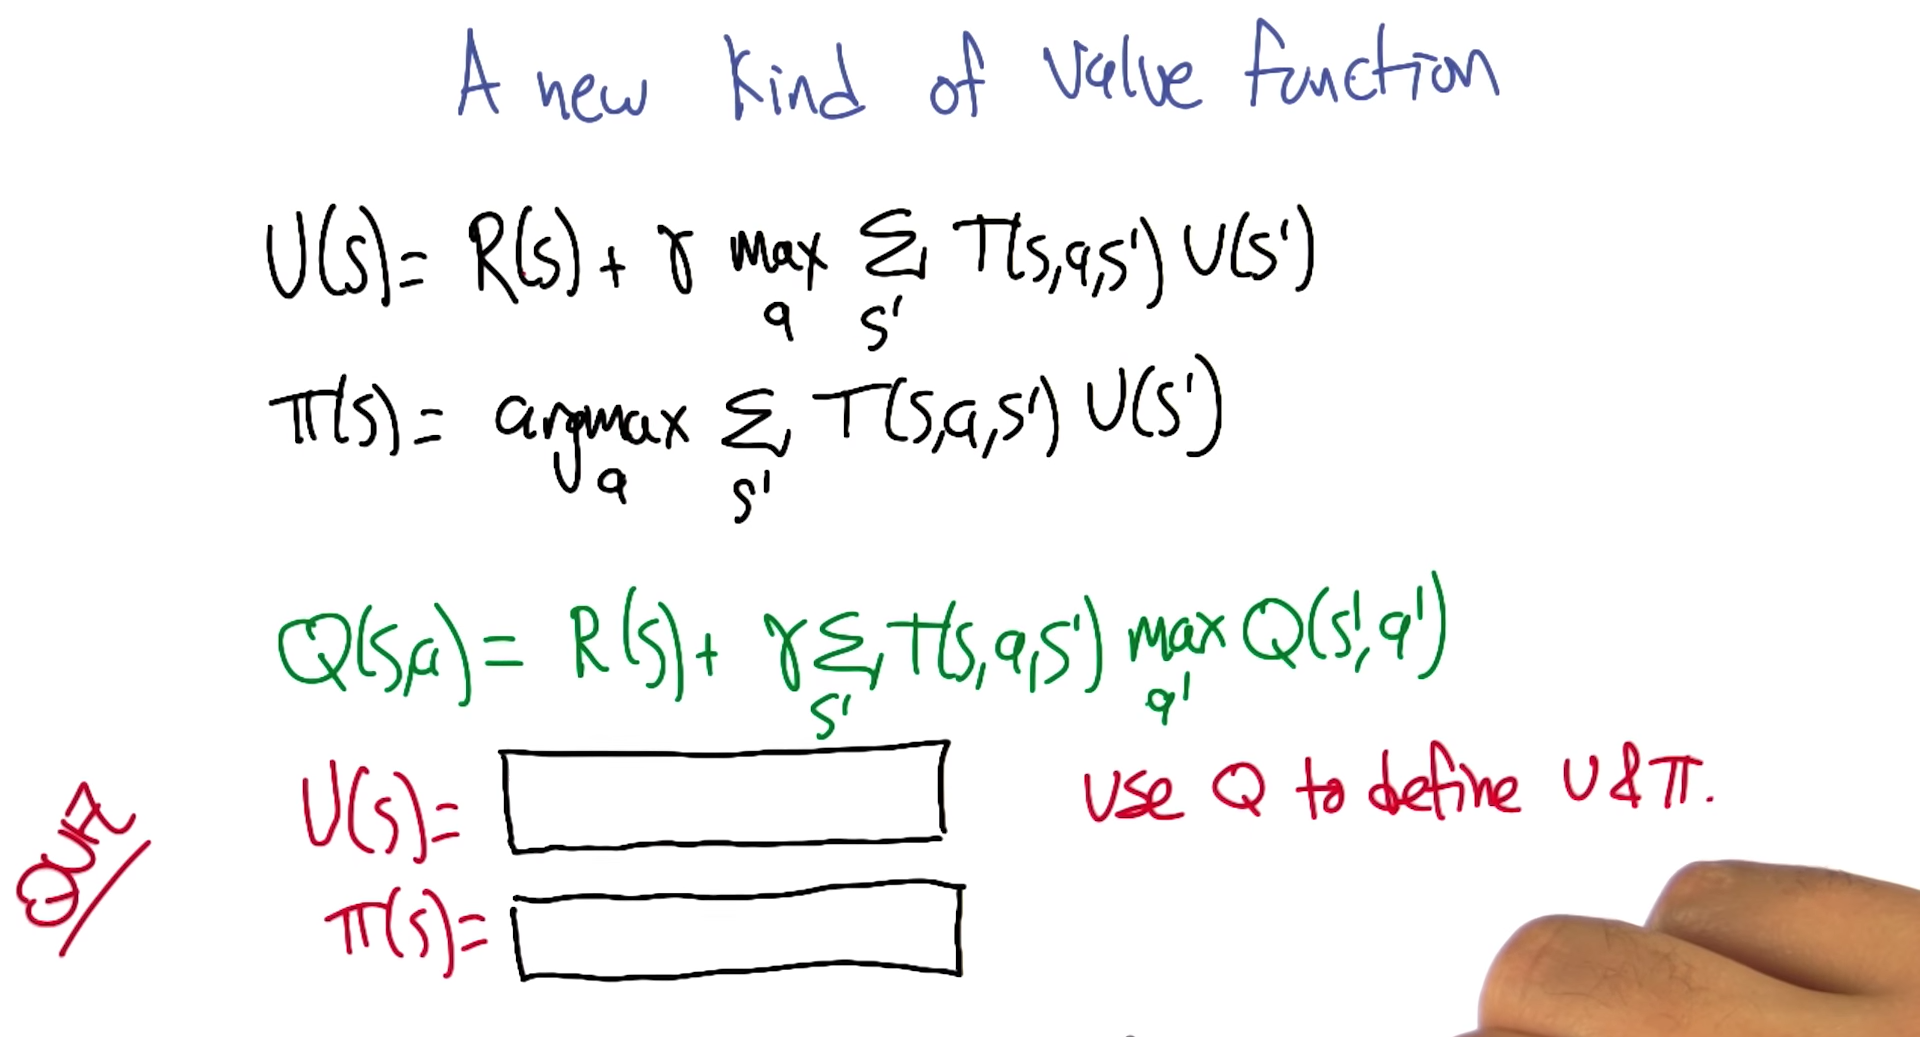 A new kind of value function
U(s)= R(s) + γ max_a Σ_s' T(s,a,s') U(s')
π(s) = argmax_a Σ_s' T(s,a,s') U(s')
Q(s,a) = R(s) + γ Σ_s' T(s,a,s') max_a' Q(s',a')
U(s)=
use Q to define U & π.
π(s)=
QUIZ